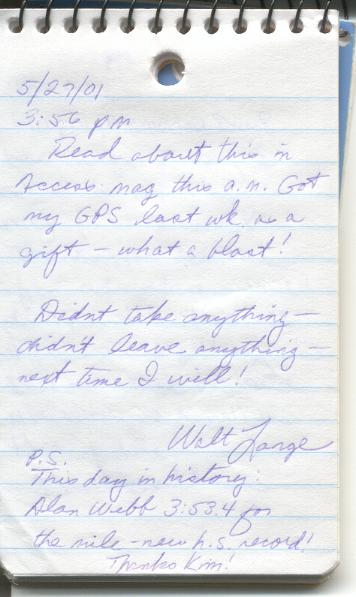 5/27/01
3:56 pm
Read about this in
Access mag this a.m. Got
my GPS last wk. as a
gift – what a blast!
Didnt take anything –
didn't leave anything –
next time I will!
Walt Lange
P.S.
This day in history:
Alan Webb 3:53.4 for
the mile – new h.s. record!
Thanks Kim!